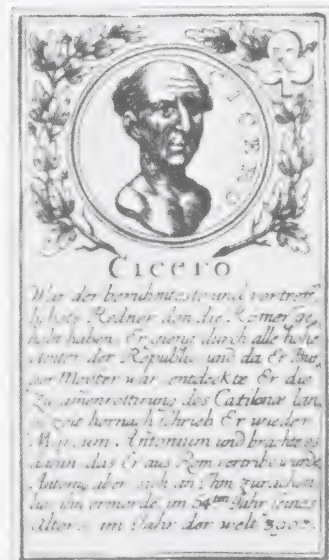 CICERO
Cicero
War der berühmteste und vortreff
lichste Redner den die Römer ge
habt haben. Er gieng durch alle hohe
der Republic und da Er Bur
ger Meister war, entdeckte Er die
Zusamenrottirung des Catilinæ lan
ge zeit hernach schrieb Er wieder
Marcum Antonium und brachte es
dahin das Er aus Rom vertribe wurde
Antonius aber sich an Ihm zurächen
lies ihn ermorde im 54ten Jahr seines
Alters im Jahr der welt